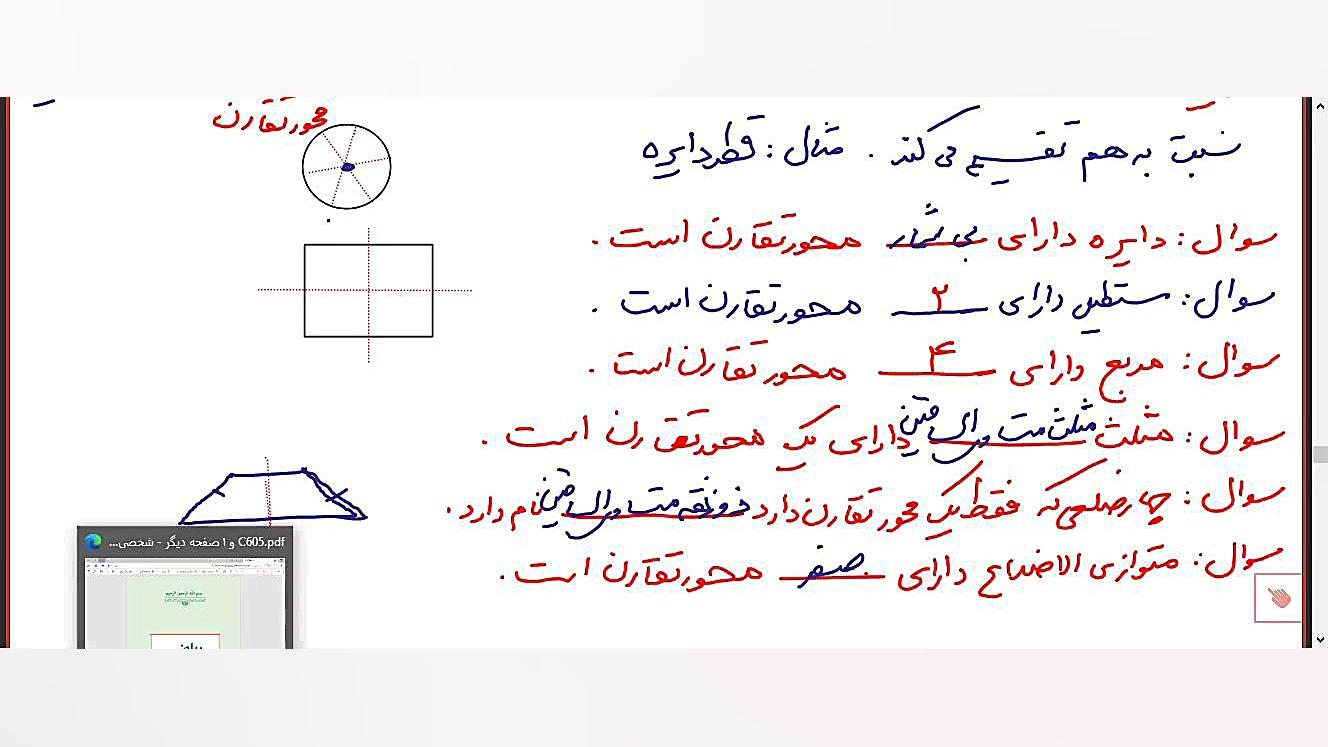 محور تقارن
نسبت به هم تقسیم می کند . مثال : قطر دایره
سوال : دایره دارای بی شمار محور تقارن است .
سوال : مستطیل دارای ۲ محور تقارن است .
سوال : مربع دارای ۴ محور تقارن است .
سوال : مثلث مثلث متساوی الساقین دارای یک محور تقارن است .
سوال : چهارضلعی که فقط یک محور تقارن دارد ذوزنقه متساوی الساقین نام دارد .
سوال : متوازی الاضلاع دارای صفر محور تقارن است .
C605.pdf و ۱ صفحه دیگر - شخصی...